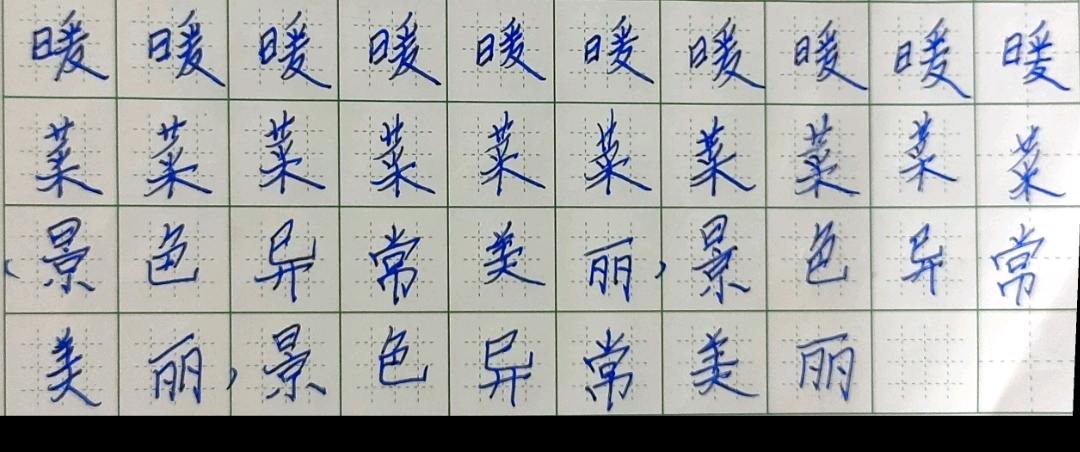 暖暖暖暖暖暖暖暖暖暖
菜菜菜菜菜菜菜菜菜菜
景色异常美丽,景色异常
美丽,景色异常美丽